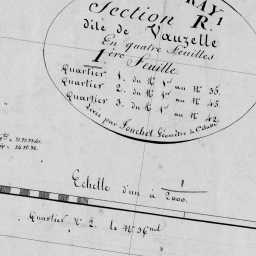 RAY
Section R.
dite de Vauzelle
En quatre Feuilles
1ère Feuille
Quartier 1. du N° 1 au N° 36.
Quartier 2. du N° 1 au N° 45.
Quartier 3. du N° 1 au N° 42.
Levée par Jouchet Géomètre de 1ère Classe
Echelle d'un à 1/2000.
Quartier N° 2. le N° 36